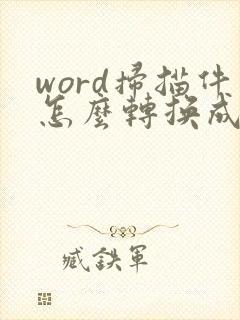 word掃描件
怎麼轉換成
臧鉄軍